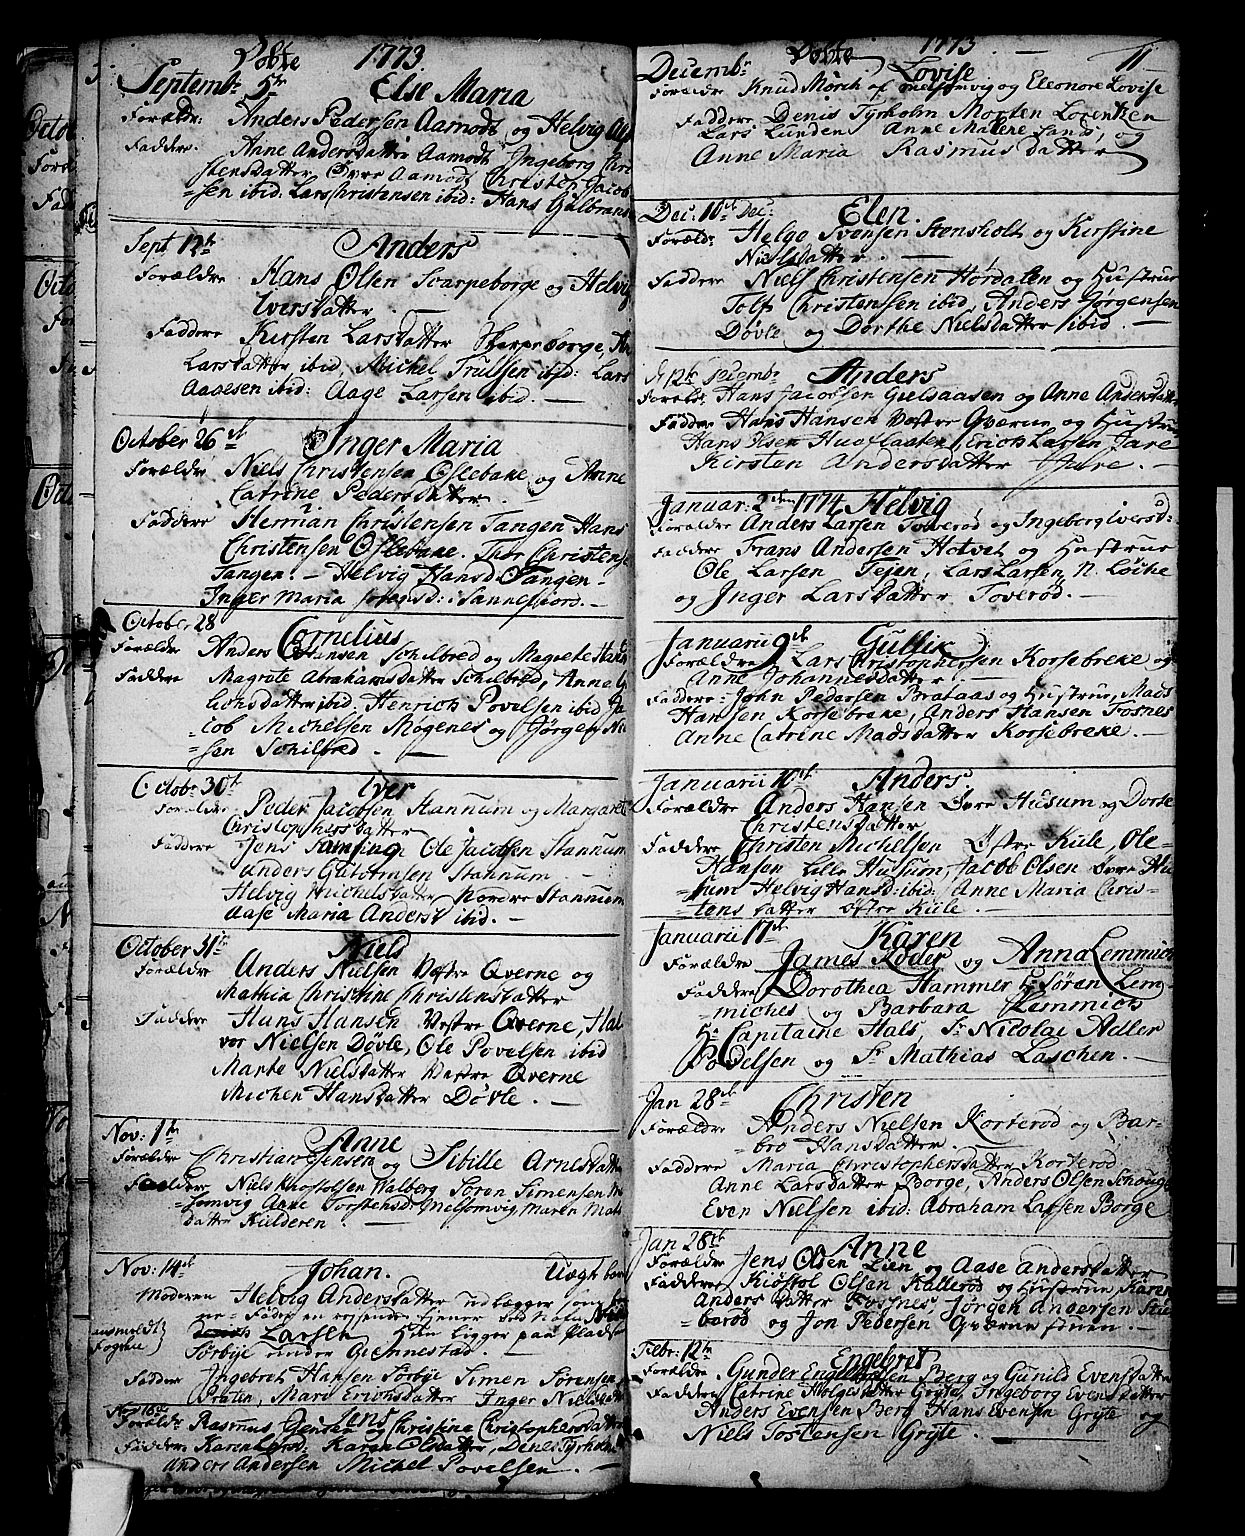 Døbte 1773
Septembr: 5te Else Maria
Forældr: Anders Pedersen Aamodt og Helvig
Faddere. Anne Andersdatter Aamodt Ingeborg Chri
stensdatter Øvre Aamodt Christen Jacob
=sen ibid: Lars Christensen ibid: Hans Gulbrans
Sept 12te Anders
Forældre Hans Olsen Scarpeborge og Helvig
Iversdatter
Faddere Kirsten Larsdatter Skarpeborge,
Larsdatter ibid, Michel Trulssen ibid: Lars
Aagesen ibid: Aage Larsen ibid. —
October 26de Inger Maria
Forældre Niels Christensen Oslebake og Anne
Catrine Pedersdatter
Faddere Herman Christensen Tangen Hans
Christensen Oslebake. Thor Christens
Tangen. — Helvig Hansd Tangen —
Inger Maria i Sannefiord. —
October 28
Cornelius
Forældre Anders Schilbred og Magrete Hans
Faddere Magrete Abrahamsdatter Schilbred, Anne
ibid: Henrich Povelsen ibid Ja
=cob Michelsen Mogenes og Jørgen
sen Schilbred. —
Octobr 30te Iver
Forældre Peder Jacobsen Stannum og Margaret
Christophersdatter
Faddere Jens Ramsing Ole Jacobsen Stannum
Anders Stannum.
Helvig Michelsdatter Nordre Stannum
Aase Maria Andersd ibid. —
October 31te Niels
Forældre Anders Nielsen Vestre Qverne og
Mathia Christine Christensdatter
Faddere Hans Hansen Vestre Qverne, Hal
vor Nielsen Døvle, Ole Povelsen ibid
Marte Nielsdatter Vestre Qverne
Michen Hansdatter Døvle. —
Nov: 1te Anne
Forældre Christian Jensen og Sibille Arnesdatter
Faddere Niels Valberg Søren Simensen
Anne Torstensdr Melsomvig Maren
datter Kulderen —
Nov: 14de Johan. Uægt barn
Moderen Helvig Andersdatter udlægger som
Fader en
Larsen Han ligger paa Plads
Sørbye under Giennestad.
Faddere Ingebret Hansen Sørbye Simen Sørensen
Maria Erichsdatter Inger Nielsdatter
Nov 16de Jens
Forældr: Rasmus Jensen og Christine Christophersdatter
Faddere Karen Karen Olsdatter, Denes Tyrholm
Anders Andersen Michel Povelsen. —
Døbte 1773 — 11
Decembr: Lovise
Forældre Knud Mørch af Melsomvig og Eleonore Lovise
Faddere Denis Tyrholm Morten Lorentzen
Lars Lunden Anne Malene Lund, og
Anne Maria Rasmusdatter
Dec. 10de Dec: Elen.
Forældr: Helge Svensen Stensholt og Kirstine
Nielsdatter. —
Faddere Niels Christensen Hørdalen og Hustrue
Christensen ibid, Anders Jørgensen
Døvle og Dorthe Nielsdatter ibid. —
d 12te Decembr Anders
Forældr. Hans Jacobsen Gielsaasen og Anne Andersdatter
Faddere Hans Hansen Vestre Qværne og Hustrue
Hans Olsen Erich Larsen Jare
Kirsten Andersdatter Jare. —
Januar: 2den 1774 Helvig
Forældre Anders Larsen Toverød og Ingeborg Iversd:
Faddere Frans Andersen Hotvet og Hustrue
Ole Larsen Fejen, Lars Larsen N. Løcke
og Inger Larsdatter Toverød. —
Januarii 9de Gullix
Forældre Lars Christophersen Korsebreke og
Anne Johannesdatter. —
Faddere: John Pedersen Brataas og Hustrue, Mads
Hansen Korsebreke, Anders Hansen Fosnes
Anne Catrine Madsdatter Korsebreke. —
Januarii 10de Anders
Forældre Anders Hansen Øvre Husum og Dorte
Christensdatter
Faddere Christen Michelsen Østre Kiile, Ole
Hansen Lille Husum, Jacob Olsen Øvre Hu
=sum Helvig Hansd: ibid: Anne Maria Chris=
=tensdatter Østre Kiile. —
Januarii 17de Karen
Forældre James Røder og Anna Lemmich
Faddere Dorothea Hammer Hr Søren Lem=
=miches og Barbara Lemmich
Hr Capitaine Hals Sr Nicolai Adler
Povelsen og Sr Mathias Laschen. —
Jan 28de Christen
Forældre Anders Nielsen Korterød og Bar=
=bro Hansdatter. —
Faddere Maria Christophersdatter Korterød
Anne Larsdatter Borge, Anders Olsen Schouge
Even Nielsen ibid: Abraham Larsen Borge
Jan 28de Anne
Forældre Jens Olsen Lien og Aase Andersdatter
Faddere Kiøstol Olsen Kallerød og Hustrue Karen
Andersdatter Fosnes, Jørgen Andersen
=berød og Jon Pedersen
Febr: 12te Engebret
Forældre Gunder Engebretsen Berg og Gunild Evensdatter
Faddere Catrine Holgesdatter Gryte, Ingeborg Evensdatter
Anders Evensen Berg Hans Evensen Gryte og
Niels Tostensen Gryte. —